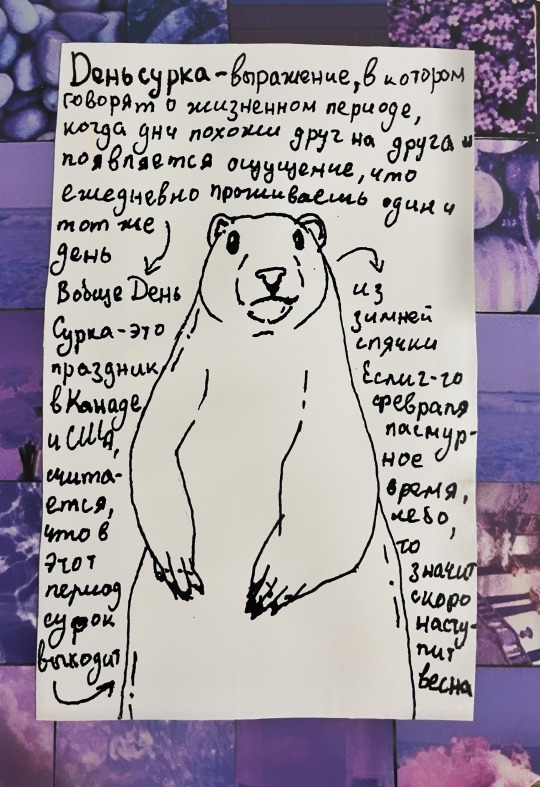 День сурка - выражение, в котором
говорят о жизненном периоде,
когда дни похожи друг на друга и
появляется ощущение, что
ежедневно проживаешь один и
тот же
день
Вобще День
Сурка - это
праздник
в Канаде
и США,
счита-
ется,
что в
этот
период
сурок
выходит
из
зимней
спячки
Если 2-го
февраля
пасмур-
ное
время,
небо,
то
значит
скоро
насту-
пит
весна